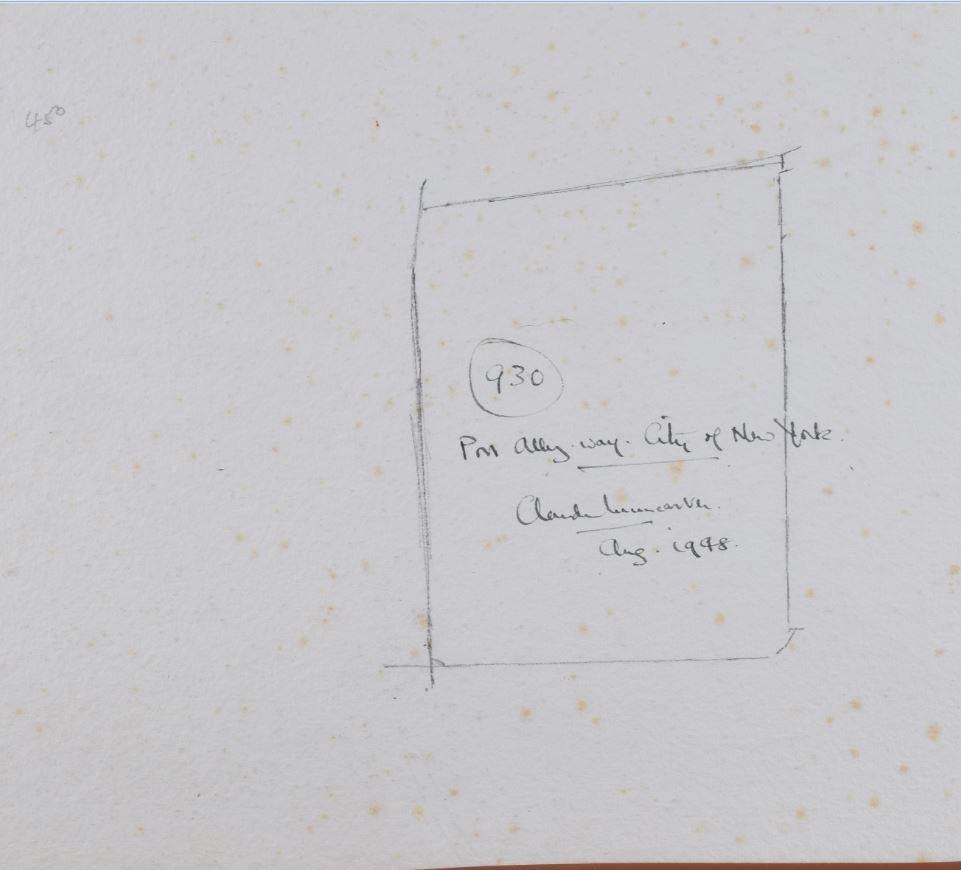 450
930
Port Alley-way. City of New York.
Claude Muncaster.
Aug. 1948.